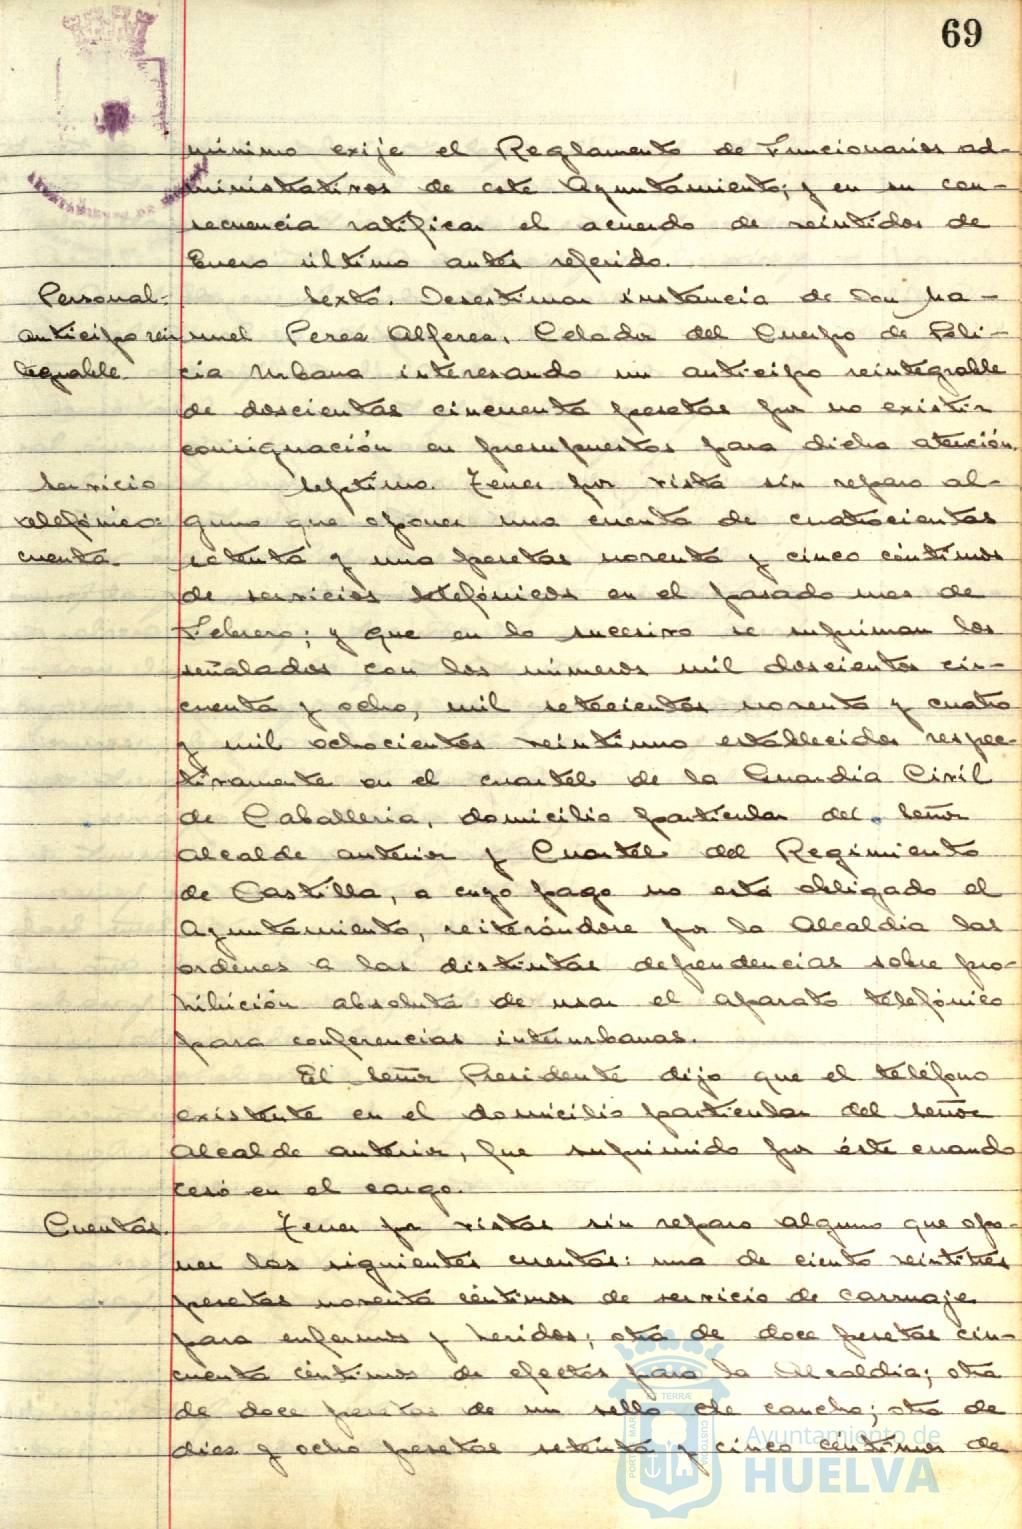 69
mínimo exije el Reglamento de Funcionarios ad-
ministrativos de este Ayuntamiento; y en su con-
secuencia ratificar el acuerdo de veintidos de
Enero último antes referido.
Personal- Sexto. Desestimar instancia de Don Ma-
anticipo rein nuel Perea Alferez, Celador del Cuerpo de Poli-
tegrable. cia Urbana interesando un anticipo reintegrable
de doscientas cincuenta pesetas por no existir
consignación en presupuestos para dicha atención.
Servicio Septimo. Tener por vista sin reparo al-
telefónico: guno que oponer una cuenta de cuatrocientas
cuenta. setenta y una pesetas noventa y cinco céntimos
de servicios telefónicos en el pasado mes de
Febrero; y que en lo sucesivo se supriman los
señalados con los números mil doscientos cin-
cuenta y ocho, mil setecientos noventa y cuatro
y mil ochocientos veintiuno establecidos respec-
tivamente en el cuartel de la Guardia Civil
de Caballeria, domicilio particular del Señor
Alcalde anterior y Cuartel del Regimiento
de Castilla, a cuyo pago no está obligado el
Ayuntamiento, reiterándose por la Alcaldia las
ordenes a las distintas dependencias sobre pro-
hibición absoluta de usar el aparato telefónico
para conferencias interurbanas.
El Señor Presidente dijo que el teléfono
existente en el domicilio particular del señor
Alcalde anterior, fue suprimido por éste cuando
cesó en el cargo.
Cuentas. Tener por vistas sin reparo alguno que opo-
ner las siguientes cuentas: una de ciento veintitres
pesetas noventa céntimos de servicio de carruaje
para enfermos y heridos; otra de doce pesetas cin-
cuenta céntimos de efectos para la Alcaldia; otra
de doce pesetas de un sello de caucho; otra de
diez y ocho pesetas setenta y cinco céntimos de
Ayuntamiento de
HUELVA